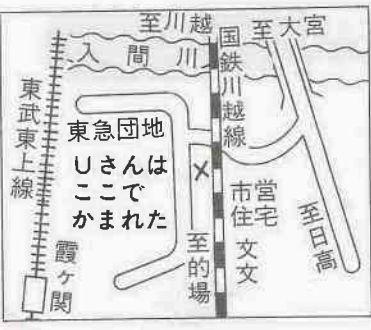 至川越
至大宮
入間川
国鉄川越線
東武東上線
東急団地
Uさんは
ここで
かまれた
×
市営
住宅
文
文
至日高
至的場
霞ヶ関